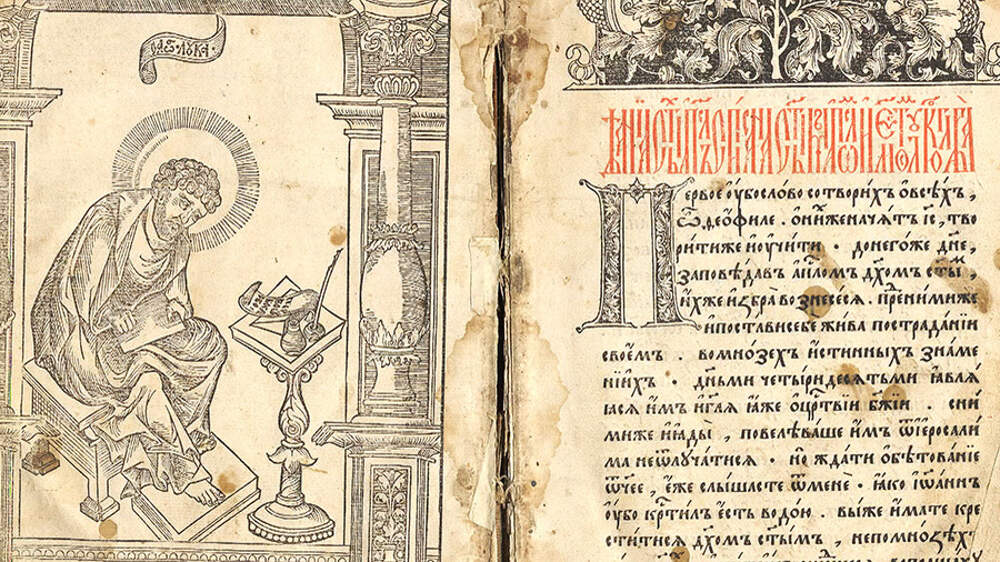 СТ҃Ы ЛꙊКА
Первое оубо слово сотворихъ ѻ всѣхъ,
ѽ ѳеѻфиле . ѻ нихже начѧтъ іс҃, тво
рити же и оучити · до негоже дн҃е,
заповѣдавъ ап҃ломъ дх҃омъ ст҃ымъ,
ихже избра вознесесѧ . пред нимиже
и постави себе жива по страданїи
своемъ . во мнозехъ истинныхъ знаме
нїихъ · дн҃ьми четыридесѧтьми ꙗвлѧ
ꙗсѧ имъ и гл҃ѧ ꙗже о црⷭ҇твїи бж҃їи . с ни
миже и ꙗды , повелѣваше имъ ѿ іеросали
ма не ѿлꙋчатисѧ · но ждати ѻбѣтованїе
ѿчее , еже слышасте ѿ мене · ꙗко іѡаннъ
оубо крⷭ҇тилъ есть водою . вы же имате кре
ститисѧ дх҃омъ ст҃ымъ , не по мнозѣхъ